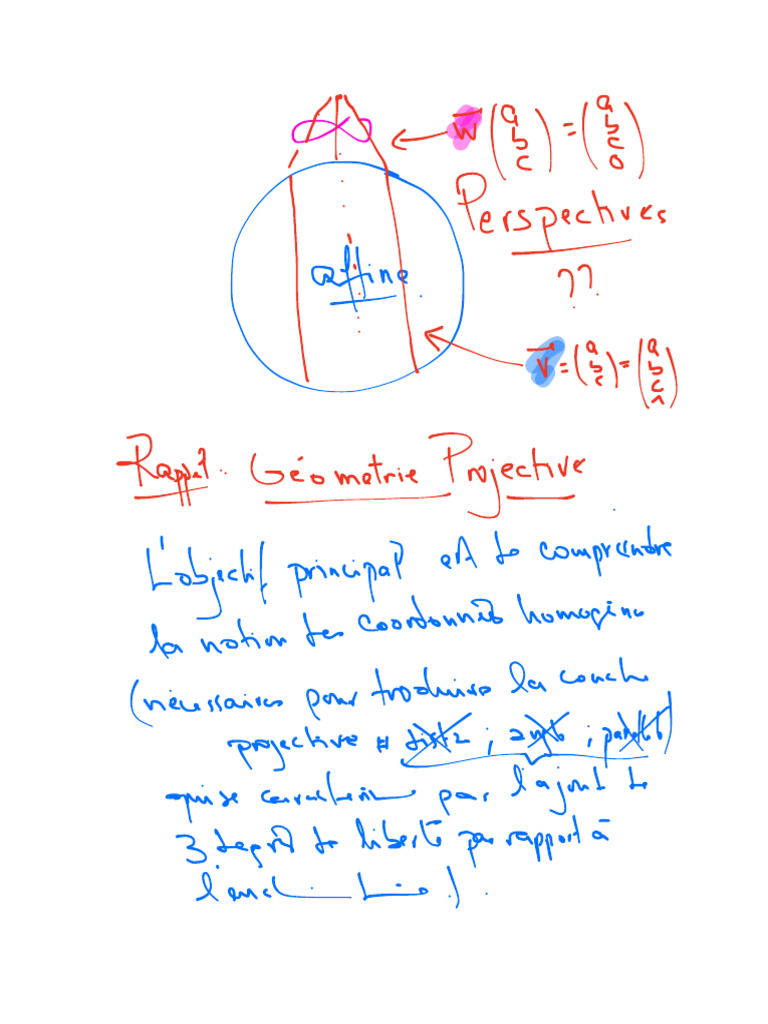 w⃗ (a b c) = (a b c 0)
Perspectives
??
affine
v⃗ = (a b c) = (a b c 1)
Rappel : Géometrie Projective
L'objectif principal est de comprendre
la notion des coordonnées homogène
(nécessaires pour traduire la couche
projective ≠ ; angle ;
qui se caractérise par l'ajout de
3 degrés de liberté par rapport à